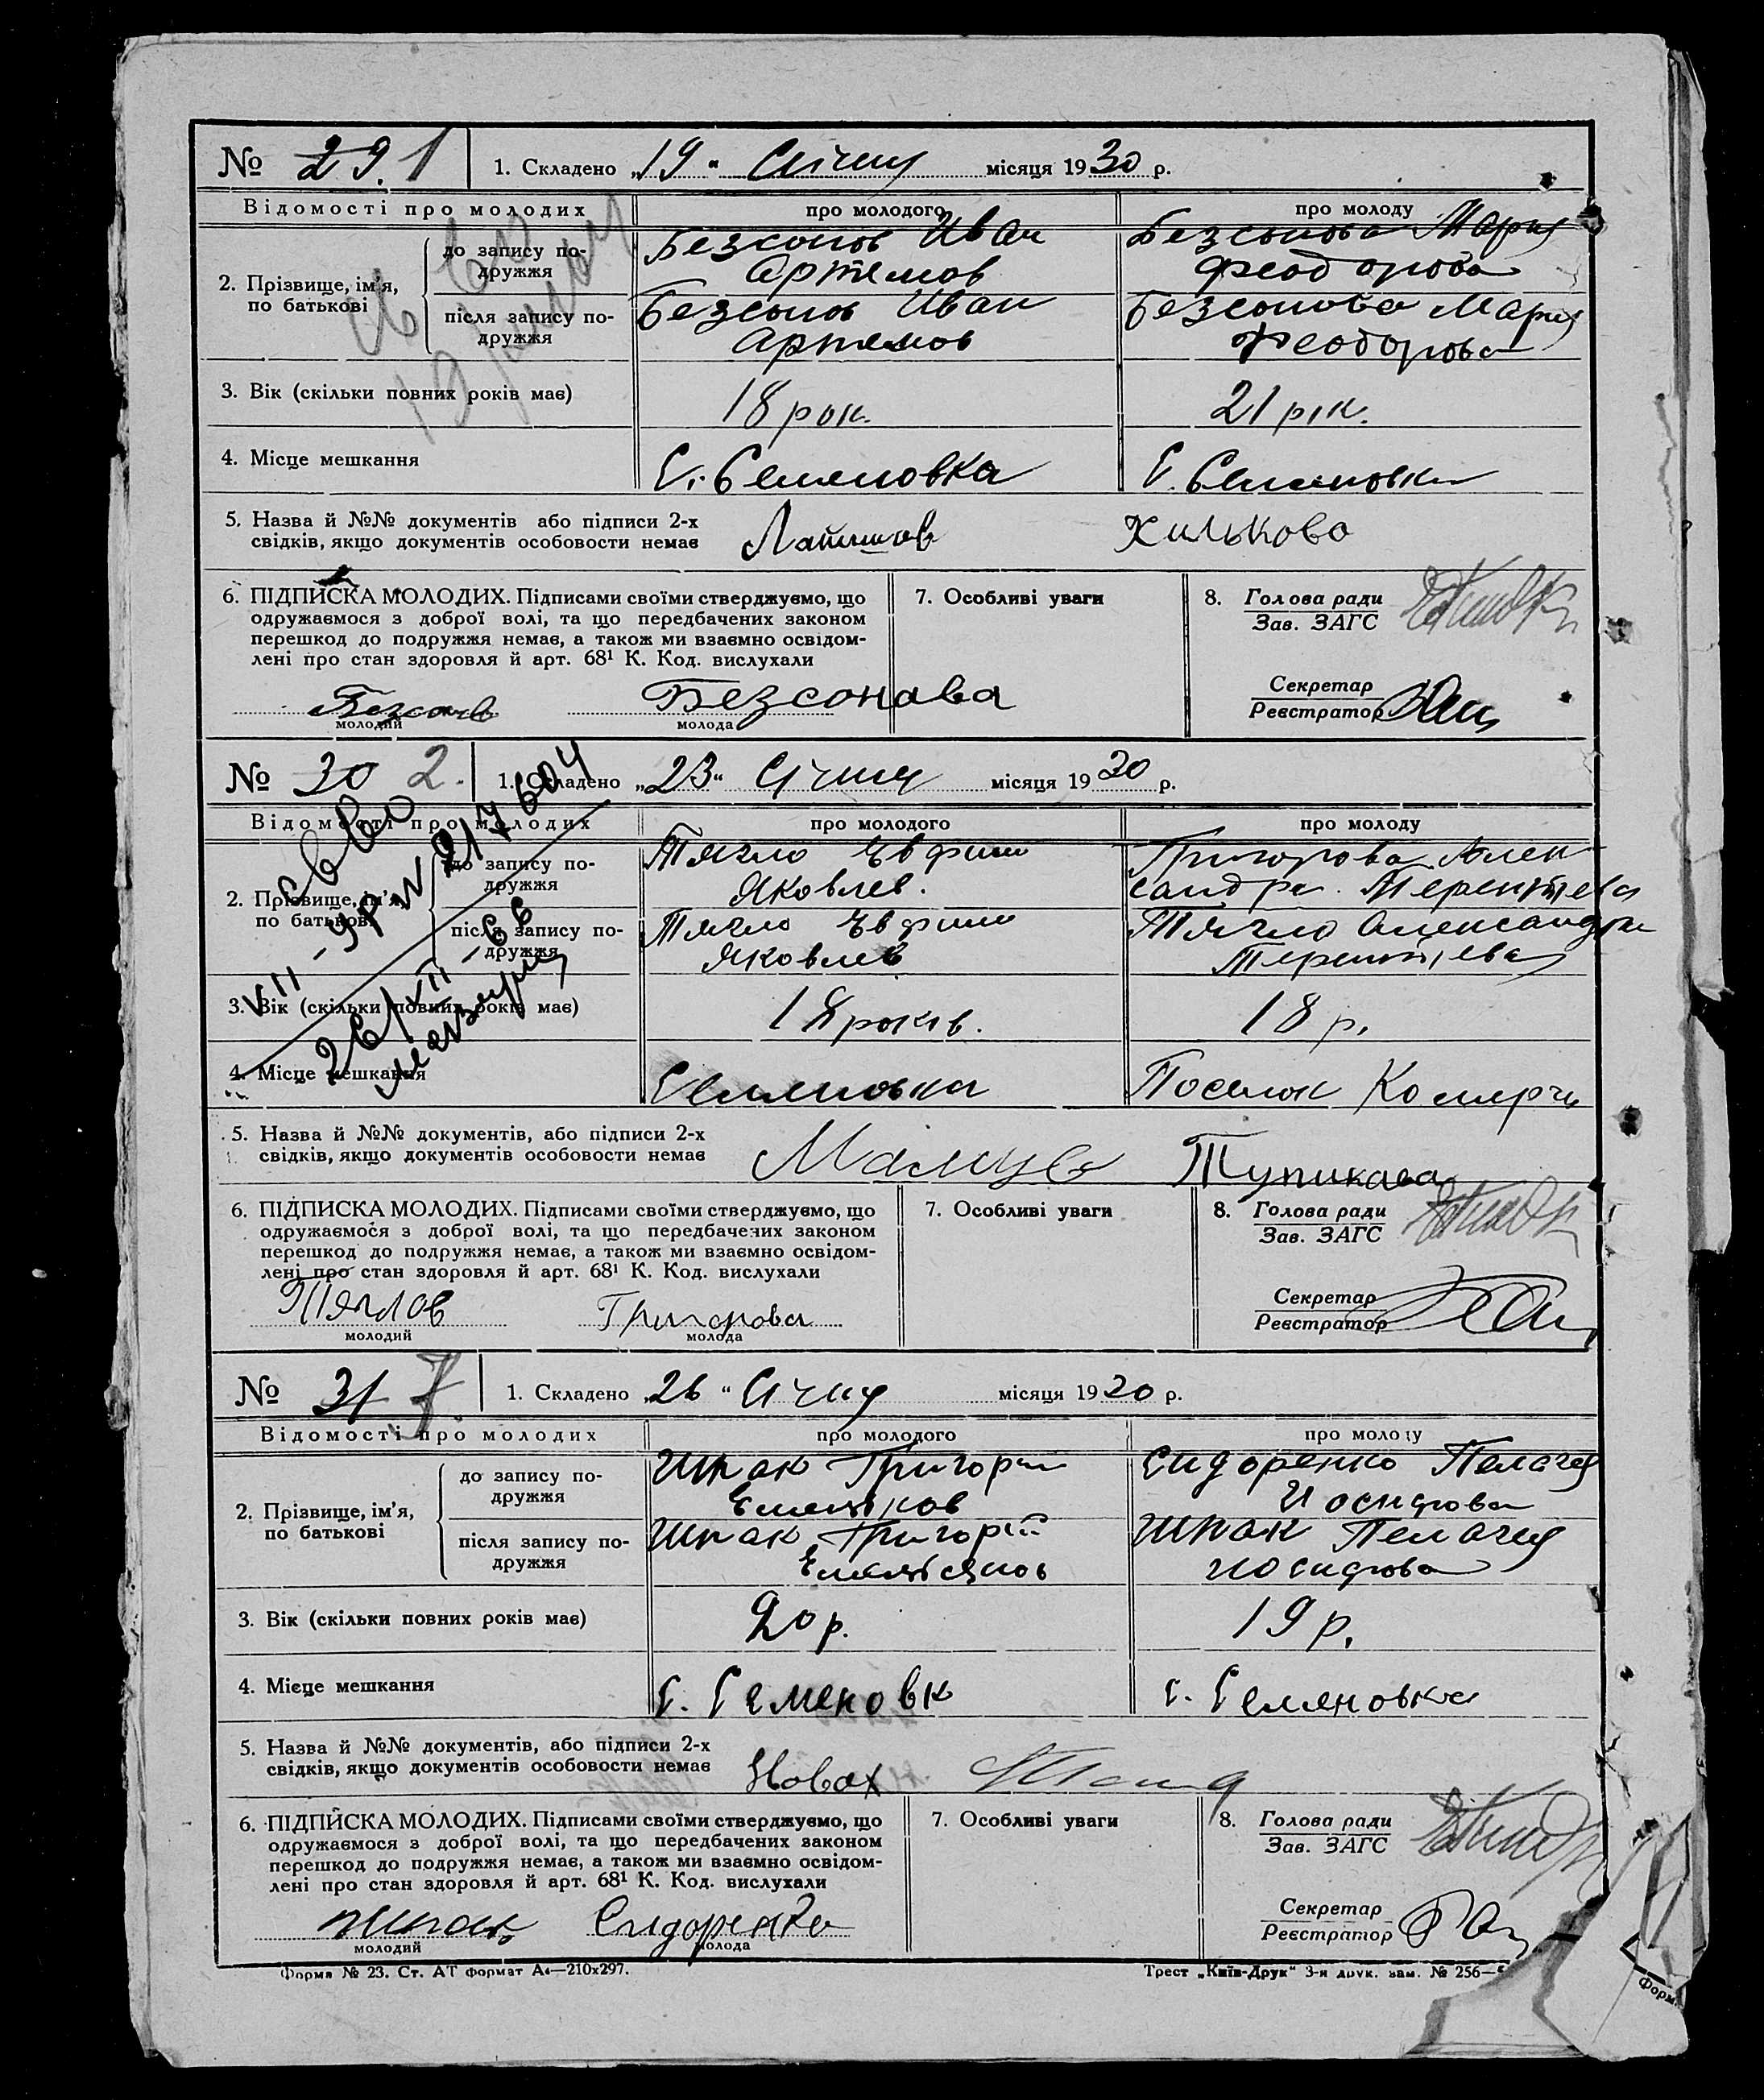 № 29. 1 1. Складено „19“ Січня місяця 1930 р.
Відомості про молодих про молодого про молоду
2. Прізвище, ім'я, по батькові
до запису подружжя Безсонов Иван Безсонова Мария
Артемов Феодорова
після запису подружжя Безсонов Иван Безсонова Мария
Артемов Феодорова
3. Вік (скільки повних років має) 18 рок. 21 рік.
4. Місце мешкання С. Семеновка С. Семеновка
5. Назва й №№ документів або підписи 2-х
свідків, якщо документів особовости немає Латишов Килькова
6. ПІДПИСКА МОЛОДИХ. Підписами своїми стверджуємо, що
одружаємося з доброї волі, та що передбачених законом
перешкод до подружжя немає, а також ми взаємно освідом-
лені про стан здоровля й арт. 68¹ К. Код. вислухали
Безсонов Безсонова
молодий молода
7. Особливі уваги
8. Голова ради
Зав. ЗАГС
Секретар
Реєстратор
№ 30 2. 1. Складено „23“ Січня місяця 1930 р.
Відомості про молодих про молодого про молоду
2. Прізвище, ім'я, по батькові
до запису подружжя Тягло Евфим Григорова Алек-
Яковлев. сандра Терентьева
після запису подружжя Тягло Евфим Тягло Александра
Яковлев Терентьева
3. Вік (скільки повних років має) 18 років. 18 р.
4. Місце мешкання Семеновка Поселок
5. Назва й №№ документів, або підписи 2-х
свідків, якщо документів особовости немає Тупикова
6. ПІДПИСКА МОЛОДИХ. Підписами своїми стверджуємо, що
одружаємося з доброї волі, та що передбачених законом
перешкод до подружжя немає, а також ми взаємно освідом-
лені про стан здоровля й арт. 68¹ К. Код. вислухали
Тяглов Григорова
молодий молода
7. Особливі уваги
8. Голова ради
Зав. ЗАГС
Секретар
Реєстратор
№ 31 1. Складено „26“ Січня місяця 1930 р.
Відомості про молодих про молодого про молоду
2. Прізвище, ім'я, по батькові
до запису подружжя Шпак Григорий Сидоренко Пелагея
Иосифова
після запису подружжя Шпак Григорій Шпак Пелагея
Иосифова
3. Вік (скільки повних років має) 20 р. 19 р.
4. Місце мешкання С. Семеновк С. Семеновка
5. Назва й №№ документів, або підписи 2-х
свідків, якщо документів особовости немає Новах
6. ПІДПИСКА МОЛОДИХ. Підписами своїми стверджуємо, що
одружаємося з доброї волі, та що передбачених законом
перешкод до подружжя немає, а також ми взаємно освідом-
лені про стан здоровля й арт. 68¹ К. Код. вислухали
Шпак Сидоренко
молодий молода
7. Особливі уваги
8. Голова ради
Зав. ЗАГС
Секретар
Реєстратор
Форма № 23. Ст. АТ формат А₄—210х297. Трест „Київ-Друк“ 3-я друк. зам. № 256—
Форм.